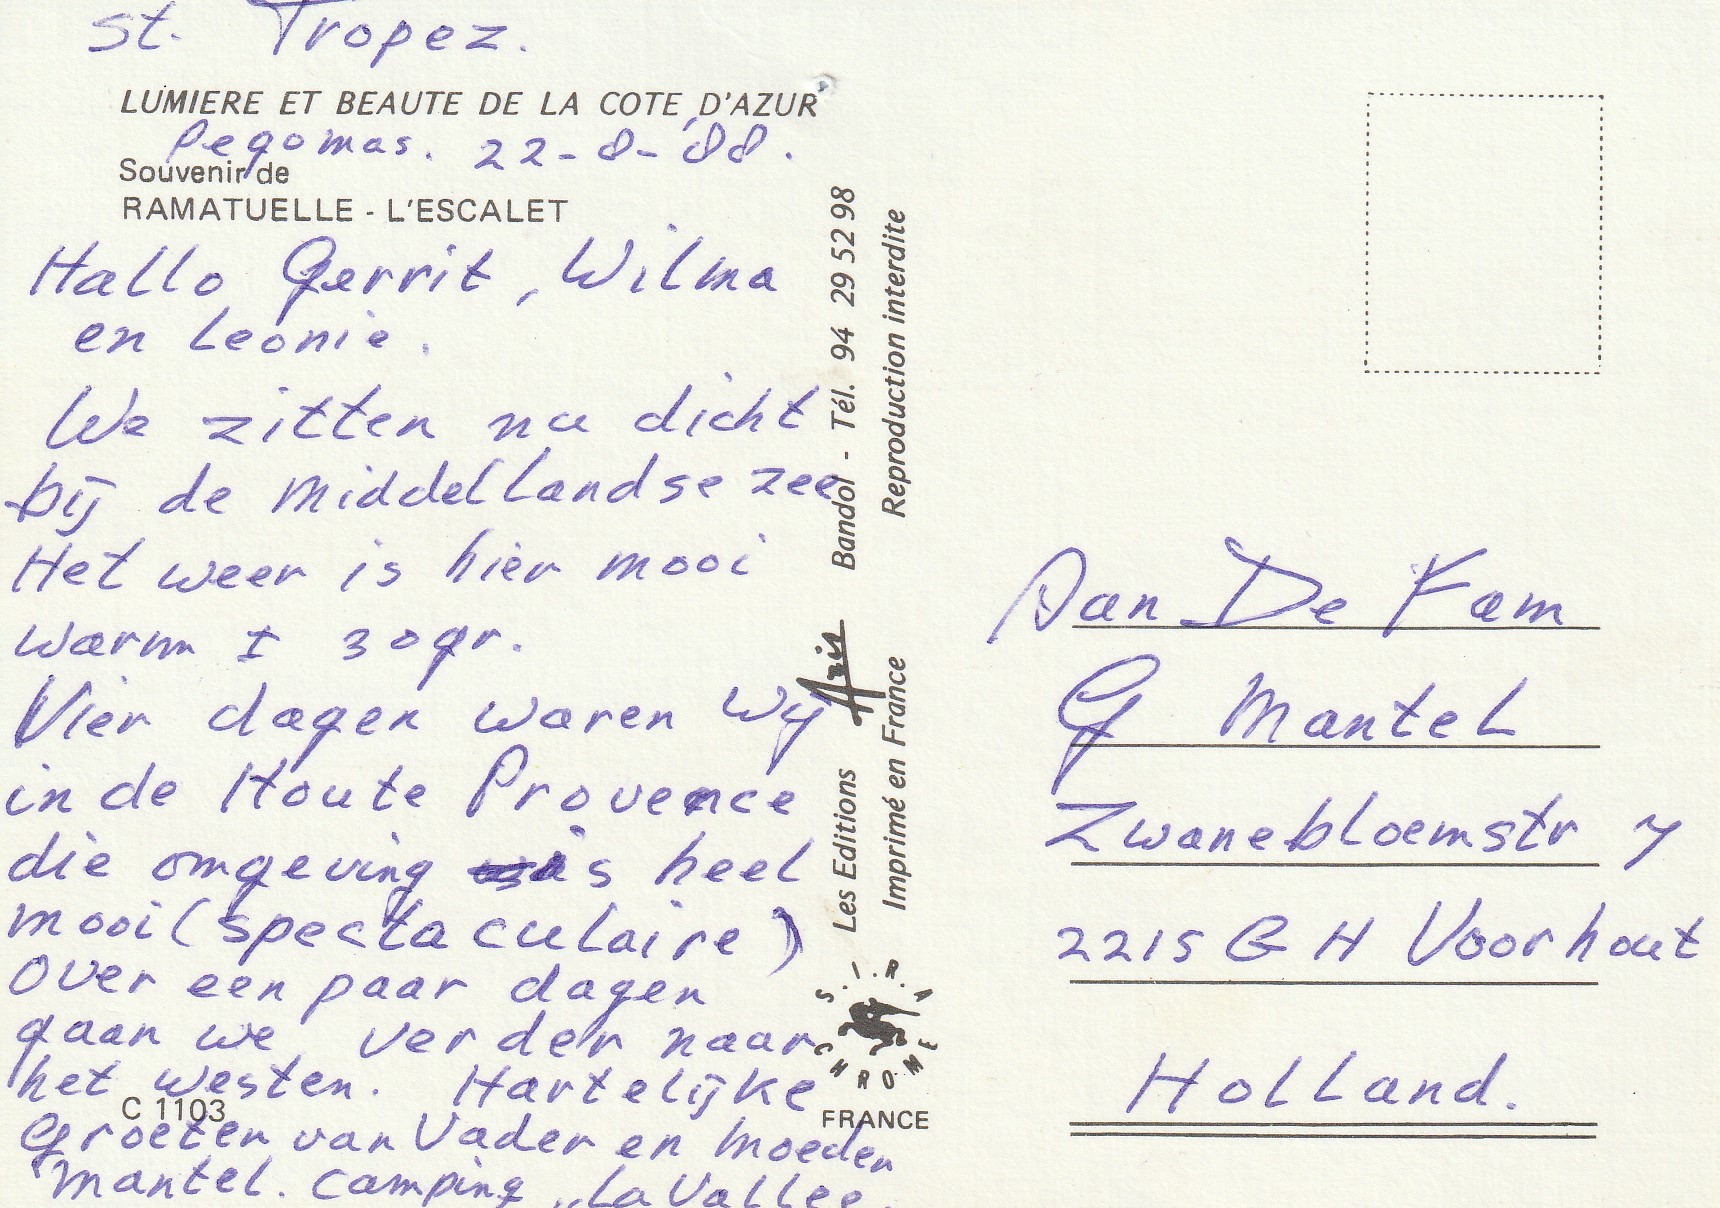 St. Tropez.
LUMIERE ET BEAUTE DE LA COTE D'AZUR
Pegomas. 22-8-'88.
Souvenir de
RAMATUELLE - L'ESCALET
Hallo Gerrit, Wilma
en Leonie.
We zitten nu dicht
bij de Middellandse zee
Het weer is hier mooi
warm ± 30gr.
Vier dagen waren wij
in de Houte Provence
die omgeving is heel
mooi (spectaculaire)
Over een paar dagen
gaan we verder naar
het westen. Hartelijke
C 1103
Groeten van Vader en Moeder
Mantel. Camping „La Vallee.
Les Editions Aris Bandol - Tél. 94 29 52 98
Imprimé en France Reproduction interdite
S.I.R.A
CHROME
FRANCE
Aan De Fam
G Mantel
Zwanebloemstr 7
2215 GH Voorhout
Holland.